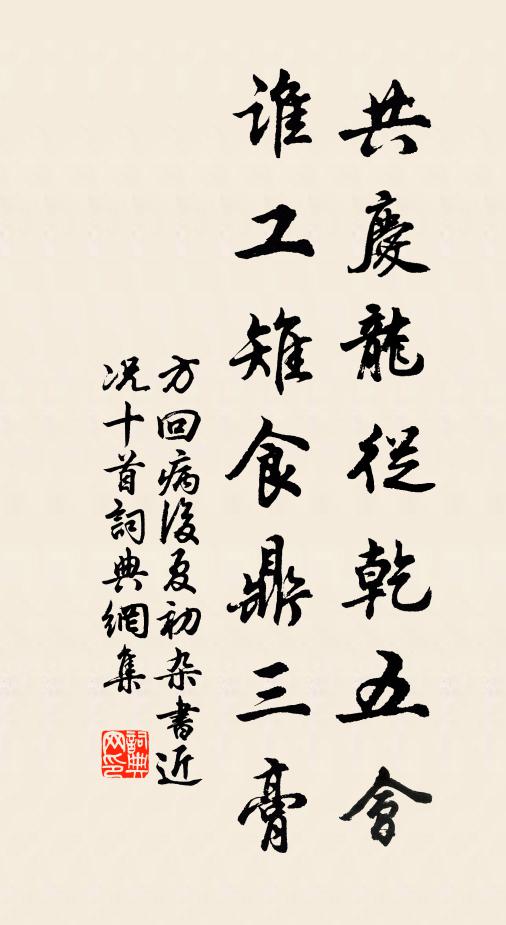 共慶龍從乾五會
誰工雉食鼎三膏
方回病後夏初杂書近
況十首詞典網集
詞典網印